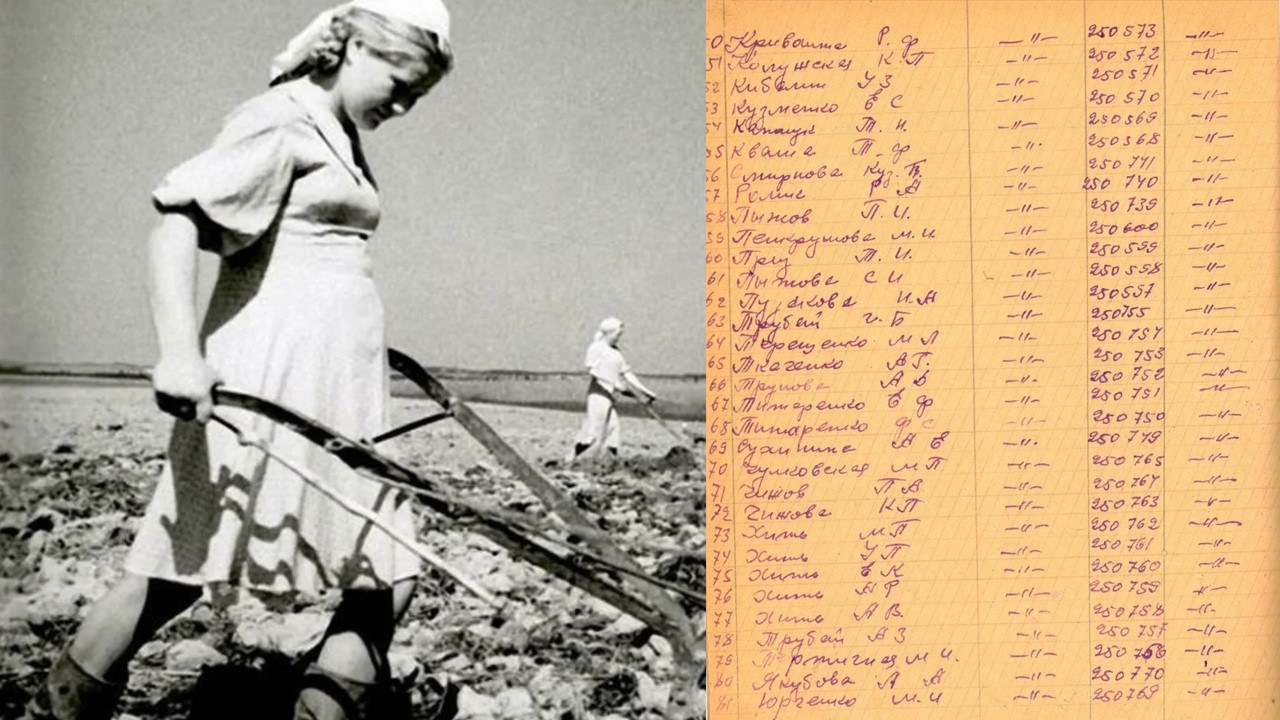 50 Кривошта Р. Ф —"— 250 573 —"—
51 Калужская К. П —"— 250 572 —"—
52 Кибалин У З —"— 250 571 —"—
53 Кузменко Е С —"— 250 570 —"—
54 Т. И. —"— 250 569 —"—
55 Кваша Т. Ф —"— 250 568 —"—
56 Смирнова Куз. В. —"— 250 741 —"—
57 Р А —"— 250 740 —"—
58 Пыжов П. И. —"— 250 739 —"—
59 Петрушова М. И. —"— 250 600 —"—
60 Т. И. —"— 250 599 —"—
61 Пыжова С И —"— 250 598 —"—
62 И. А —"— 250 597 —"—
63 Трубай Г. Б —"— 250 755 —"—
64 Терещенко М Л —"— 250 754 —"—
65 Ткаченко А Г. —"— 250 753 —"—
66 Трунова А Д —"— 250 752 —"—
67 Титаренко Е Ф —"— 250 751 —"—
68 Титаренко Ф С —"— 250 750 —"—
69 А Е —"— 250 749 —"—
70 Чумковская М П —"— 250 765 —"—
71 Чижов П А —"— 250 764 —"—
72 Чижова К П —"— 250 763 —"—
73 Хить М П —"— 250 762 —"—
74 Хить У П —"— 250 761 —"—
75 Хить Е К —"— 250 760 —"—
76 Хить А Ф —"— 250 759 —"—
77 Хить А В. —"— 250 758 —"—
78 Трубай А З —"— 250 757 —"—
79 М. И. —"— 250 —"—
80 Якубова А А —"— 250 770 —"—
81 Юрченко М. И —"— 250 769 —"—